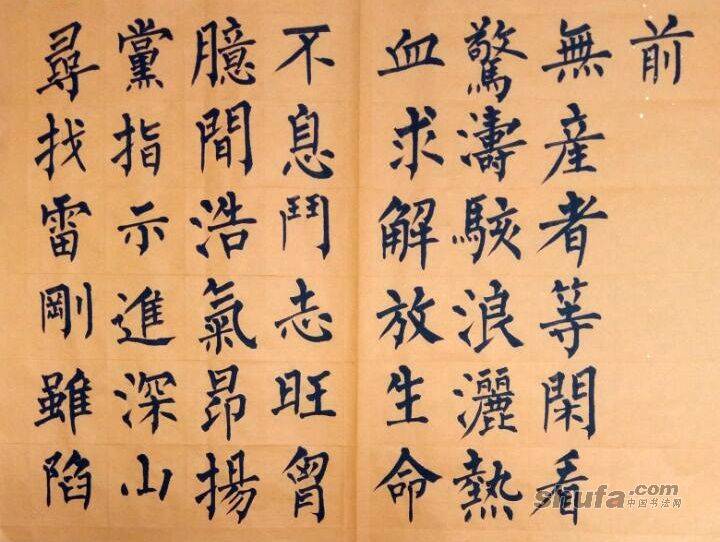 前
無產者等閑看
驚濤駭浪灑熱
血求解放生命
不息鬥志旺胷
臆間浩氣昂揚
黨指示進深山
尋找雷剛雖陷
shufa.com
中国书法网